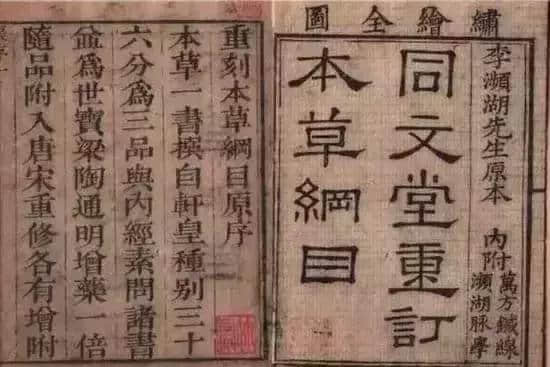 繡繪全圖
李瀕湖先生原本
同文堂重訂
本草綱目
內附萬方鍼線
瀕湖脉學
重刻本草綱目原序
本草一書撰自軒皇種別三十
六分為三品與內經素問諸書
益為世寶梁陶通明增藥一倍
隨品附入唐宋重修各有增附